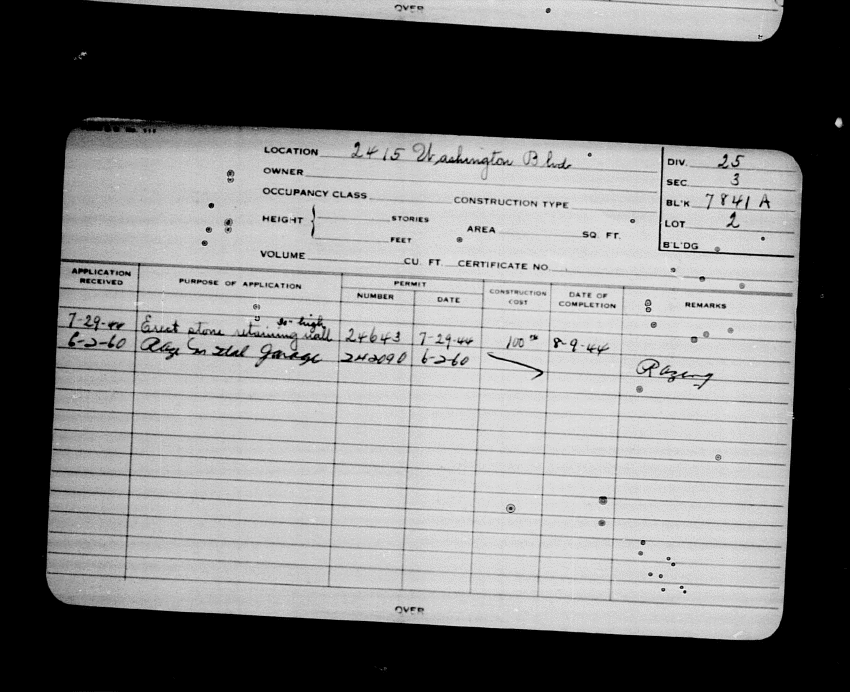 OVER
LOCATION 2415 Washington Blvd
DIV. 25
OWNER
SEC. 3
OCCUPANCY CLASS CONSTRUCTION TYPE
BL'K 7841 A
HEIGHT { STORIES AREA SQ. FT.
LOT 2
FEET
B'L'DG
VOLUME CU. FT. CERTIFICATE NO.
APPLICATION RECEIVED PURPOSE OF APPLICATION PERMIT NUMBER DATE CONSTRUCTION COST DATE OF COMPLETION REMARKS
high
7-29-44 Erect stone retaining wall 24643 7-29-44 100 8-9-44
6-2-60 Raze Metal Garage 242090 6-2-60 Razing
OVER